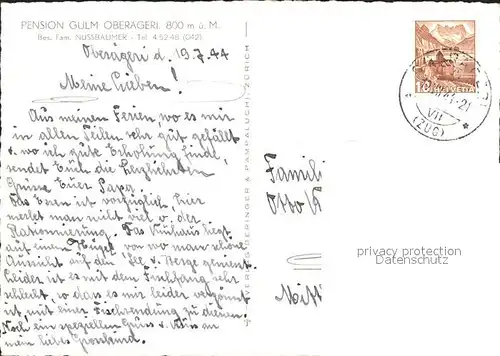 PENSION GULM OBERÄGERI. 800 m ü. M.
Bes. Fam. NUSSBAUMER - Tel. 4 52 48 (042)
Oberägeri d. 19.7.44
Meine Lieben!
Aus meinen Ferien, wo es mir
in allen Teilen sehr gut gefällt
u. wo ich gute Erholung finde,
sendet Euch die herzlichsten
Grüsse Euer Papa
Das Essen ist vorzüglich, hier
merkt man nicht viel v. der
Rationierung. Das Kurhaus liegt
auf einem Hügel von wo man schöne
Aussicht auf den See u. Berge geniesst.
Leider ist es mit dem Fischfang sehr
schlecht, so dass es mir leider vergönnt
ist, mit einer Fischsendung zu dienen.
Noch ein speziellen Gruss u. Kuss an
mein liebes Grosskind.
VERLAG DERINGER & PAMPALUCHI, ZÜRICH
HELVETIA
VII
(ZUG)
Famili
Otto K
Mitt
privacy protection
www.ansichtskarten-lexikon.de